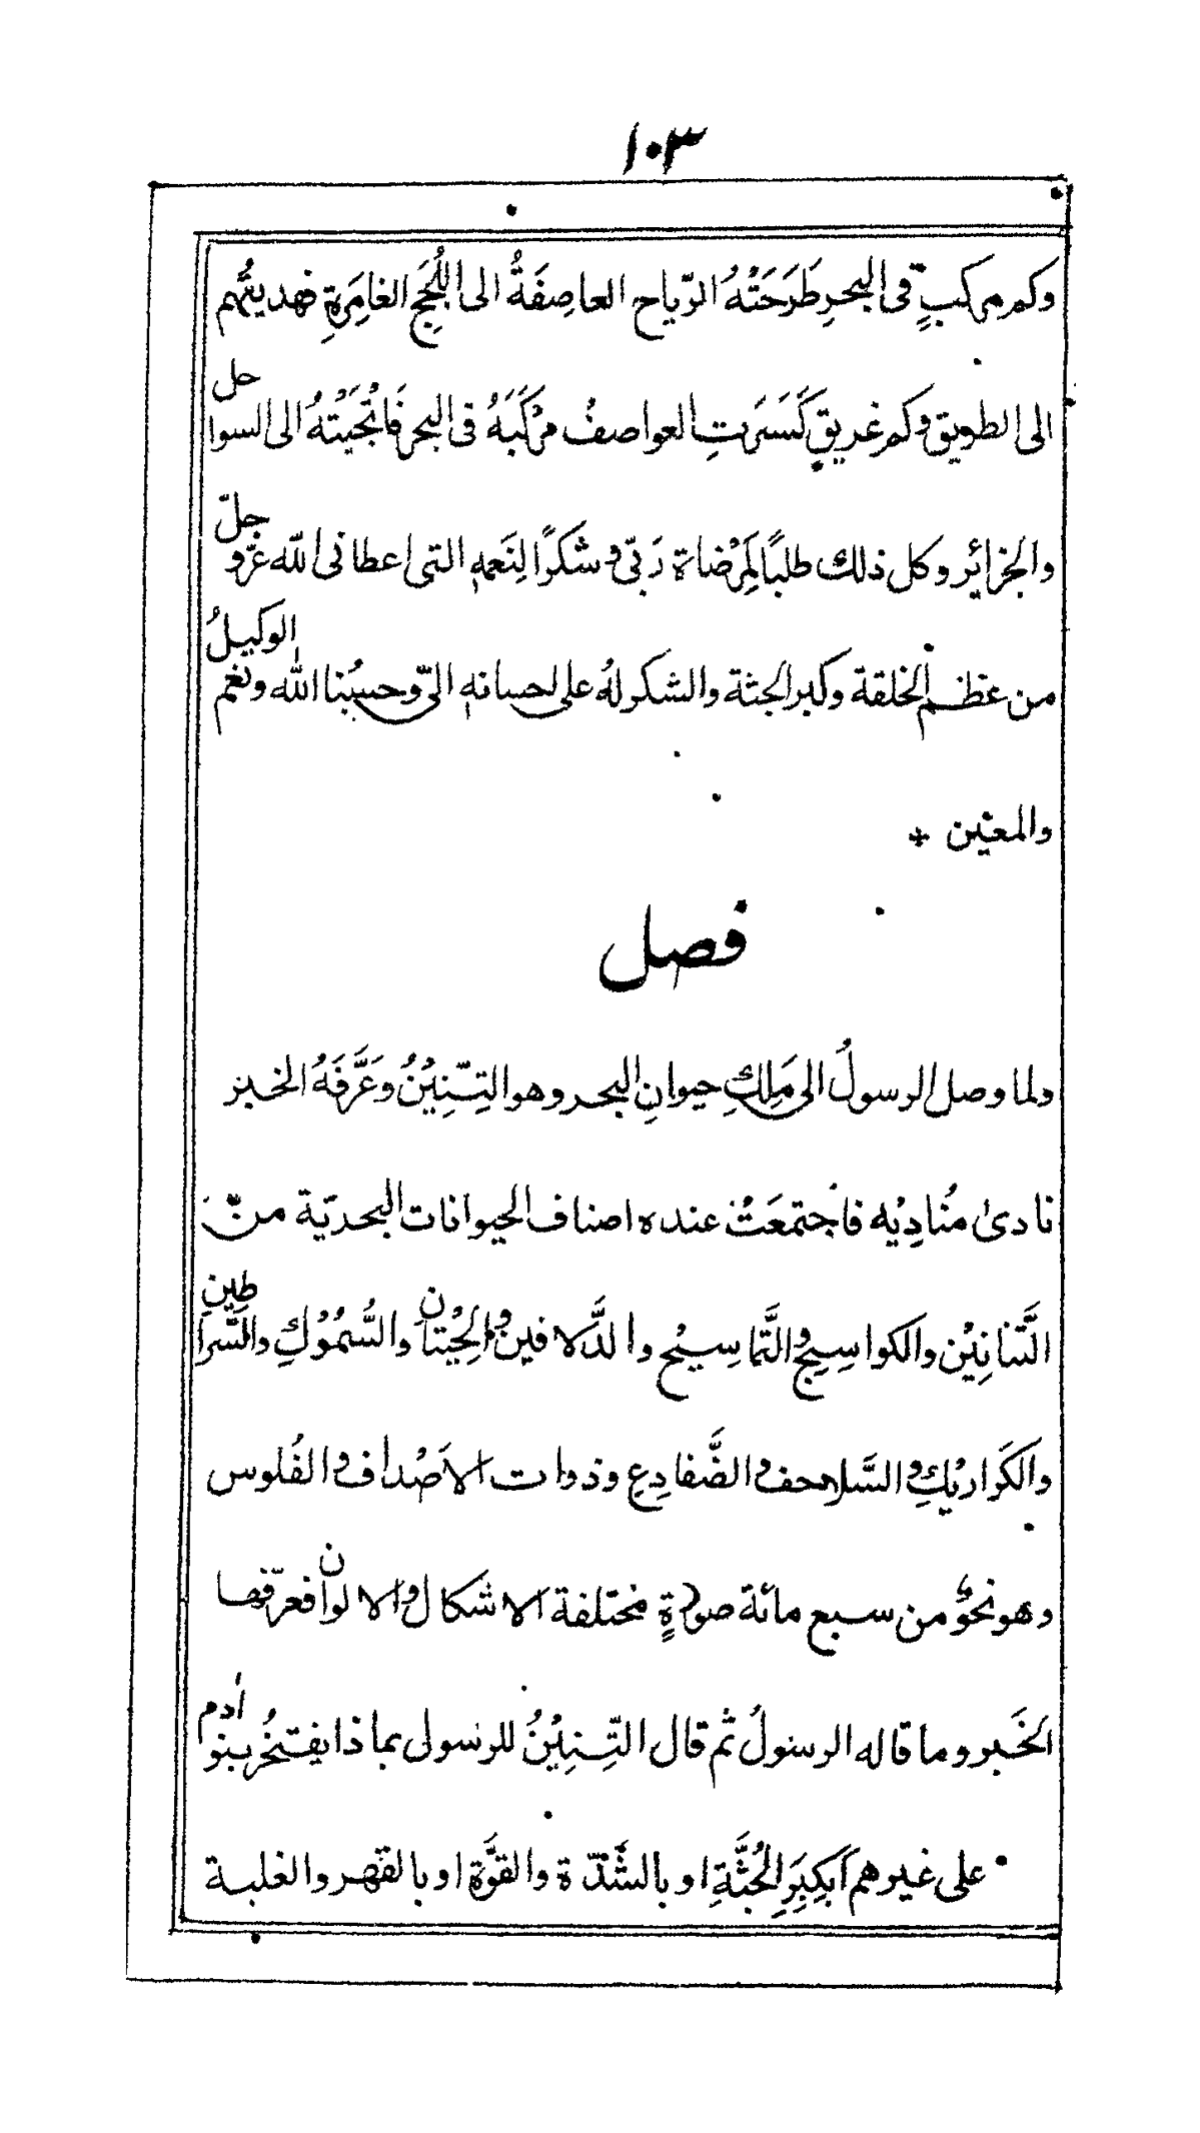 ١٠٣
وكم مركبٍ فى البحرِ طَرَحَتْهُ الرّياح العاصِفَةُ الى اللُّجَجِ الغامِرَةِ فهديتُهم
الى الطريق وكم غريقٍ كَسَرَتِ العواصفُ مَرْكَبَهُ فى البحر فَانْجَيْتُهُ الى السواحل
والجزائر وكل ذلك طلبًا لِمَرْضاة رَبّى وشكرًا لِنَعمهِ التى اعطانى اللّه عزّو جلّ
من عظم الخلقة وكبر الجثة والشكر لهُ على احسانه الىّ وحسبُنا اللّه ونعم الوكيلُ
والمعين +
فصل
ولما وصل الرسولُ الى مَلِكِ حيوانِ البحر وهو التِنِّيْنُ وَعَرَّفَهُ الخبر
نادىٰ مُنادِيْه فاجتمعَتْ عنده اصناف الحيوانات البحريّة من
التَّنانِيْن والكواسِيجِ والتَّماسِيْحِ والدَّلافين والحِيْتان والسُّمُوْكِ والسَّراطِينِ
والكَرارِيْكِ والسَّلاحف والضَّفادِعِ وذوات الاَصْداف والفُلوس
وهو نحوٌ من سبع مائة صورةٍ مختلفة الاشكال والالوان فعرّفها
الخَبر وما قاله الرسولُ ثم قال التِّنِيْنُ للرسول بماذا يفتخرُ بنو اٰدم
على غيرهم اَبكِبَرِ الجُثَّةِ او بالشَّدّة والقوَّةِ او بالقهر والغلبة